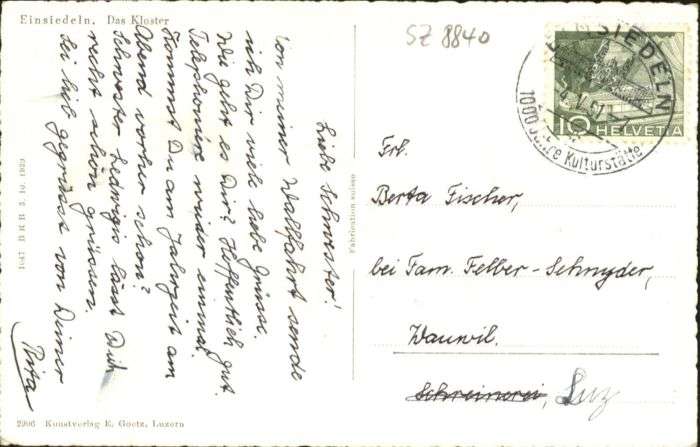 Einsiedeln. Das Kloster
SZ 8840
Liebe Schwester!
Von meiner Wallfahrt sende
ich Dir viele liebe Grüsse.
Wie geht es Dir? Hoffentlich gut.
Telephoniere wieder einmal.
Kommst Du am Jahrzeit am
Abend vorher schon?
Schwester Ledwigis lässt Dich
recht schön grüssen.
Sei lieb gegrüsst von Deiner
Rita
EINSIEDELN
1000 Jahre Kulturstätte
10 HELVETIA
Frl.
Berta Fischer,
bei Fam. Felber-Schnyder,
Wauwil.
Schreinerei, Luz
Fabrication suisse
1047 BRB 3. 10. 1939
2906 Kunstverlag E. Goetz, Luzern